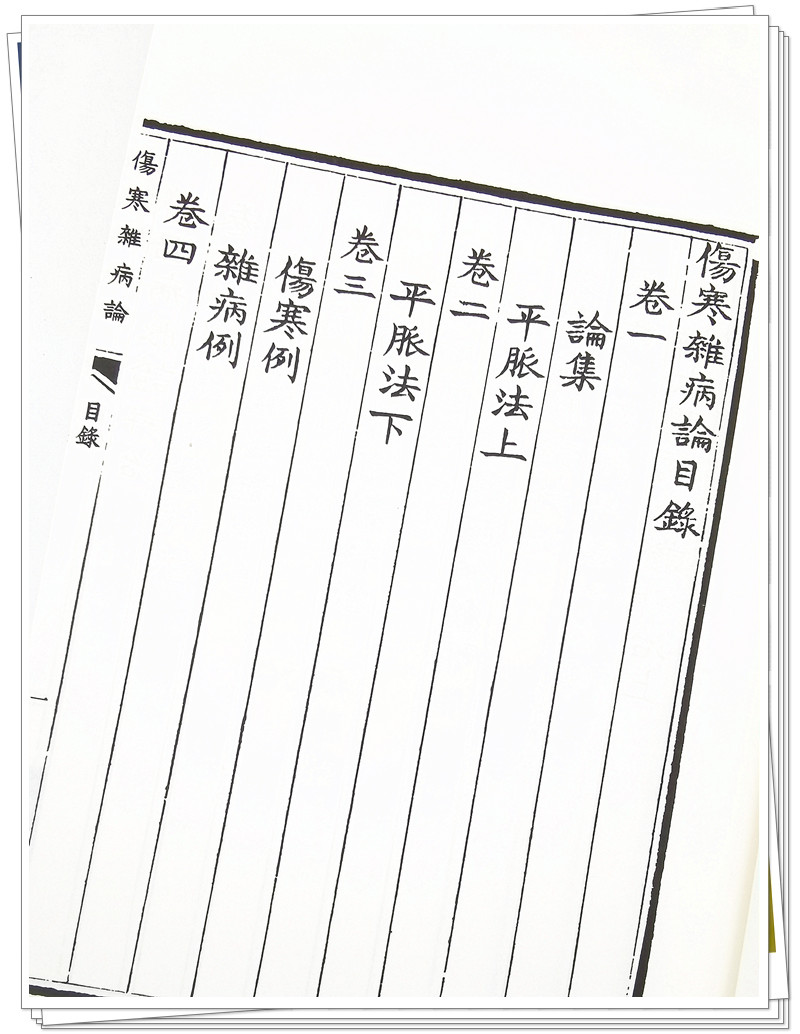 傷寒雜病論目錄
卷一
論集
平脈法上
卷二
平脈法下
卷三
傷寒例
雜病例
卷四
傷寒雜病論
目錄
一